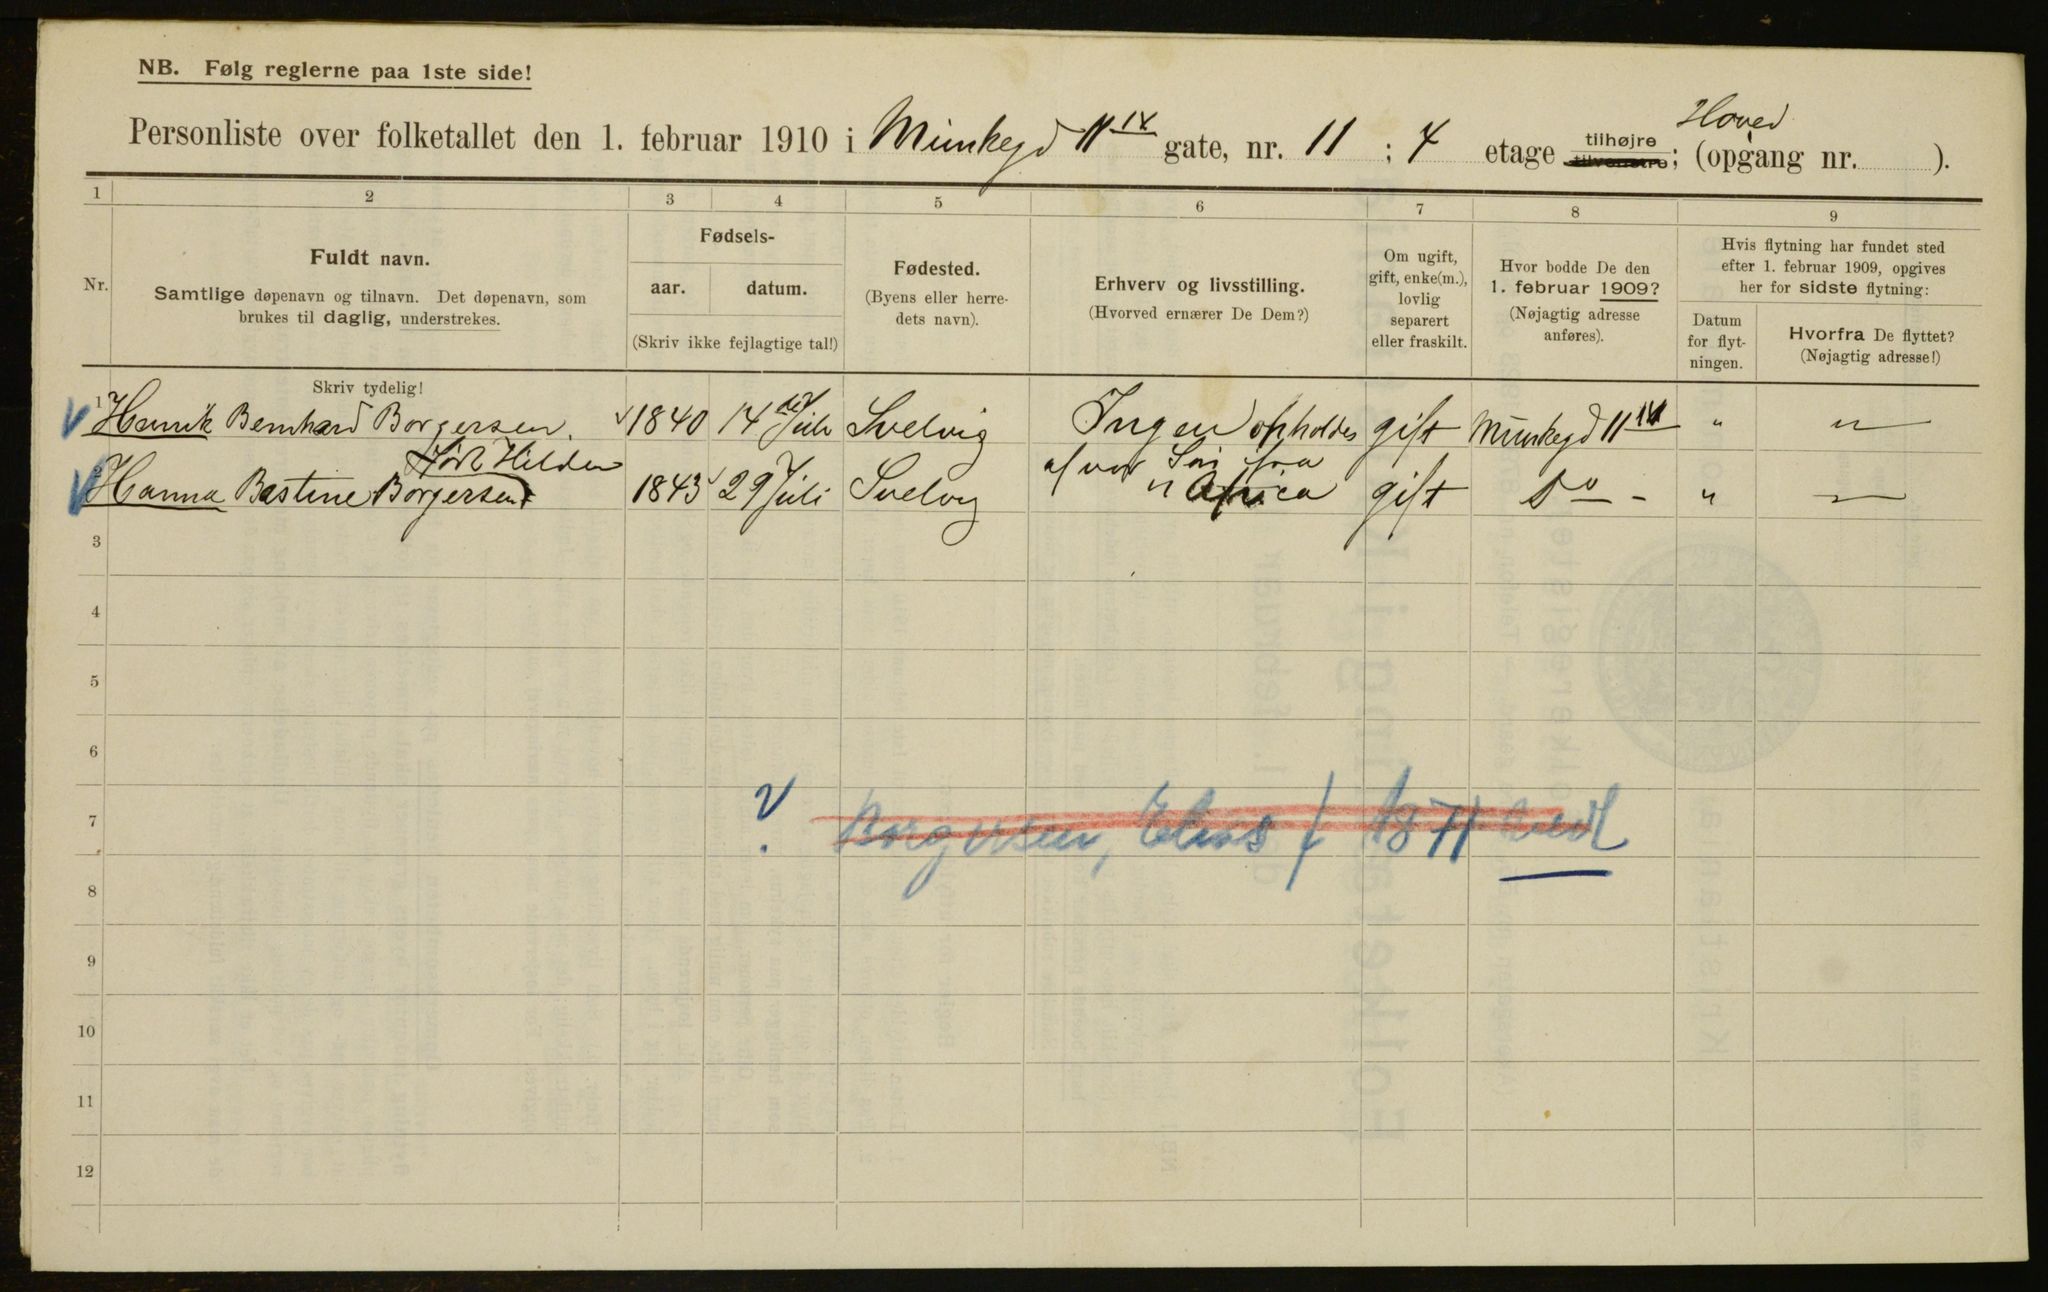 NB. Følg reglerne paa 1ste side!
Hoved
Personliste over folketallet den 1. februar 1910 i Munkegd 11 IV gate, nr. 11 ; 4 etage tilhøjre tilvenstre; (opgang nr. ).
1 2 3 4 5 6 7 8 9
Nr.
Fuldt navn.
Samtlige døpenavn og tilnavn. Det døpenavn, som
brukes til daglig, understrekes.
Skriv tydelig!
Fødsels-
aar. datum.
(Skriv ikke fejlagtige tal!)
Fødested.
(Byens eller herre-
dets navn).
Erhverv og livsstilling.
(Hvorved ernærer De Dem?)
Om ugift,
gift, enke(m.),
lovlig
separert
eller fraskilt.
Hvor bodde De den
1. februar 1909?
(Nøjagtig adresse
anføres).
Hvis flytning har fundet sted
efter 1. februar 1909, opgives
her for sidste flytning:
Datum
for flyt-
ningen.
Hvorfra De flyttet?
(Nøjagtig adresse!)
1 Henrik Bernhard Borgersen. 1840 14 Juli Svelvig Ingen opholdes gift Munkegd 11 IV " "
født Hilden af vor Søn fra
2 Hanna Bastine Borgersen 1843 29 Juli Svelvig " Africa gift Do - " "
3
4
5
6
7 Borgersen, f 1871
8
9
10
11
12